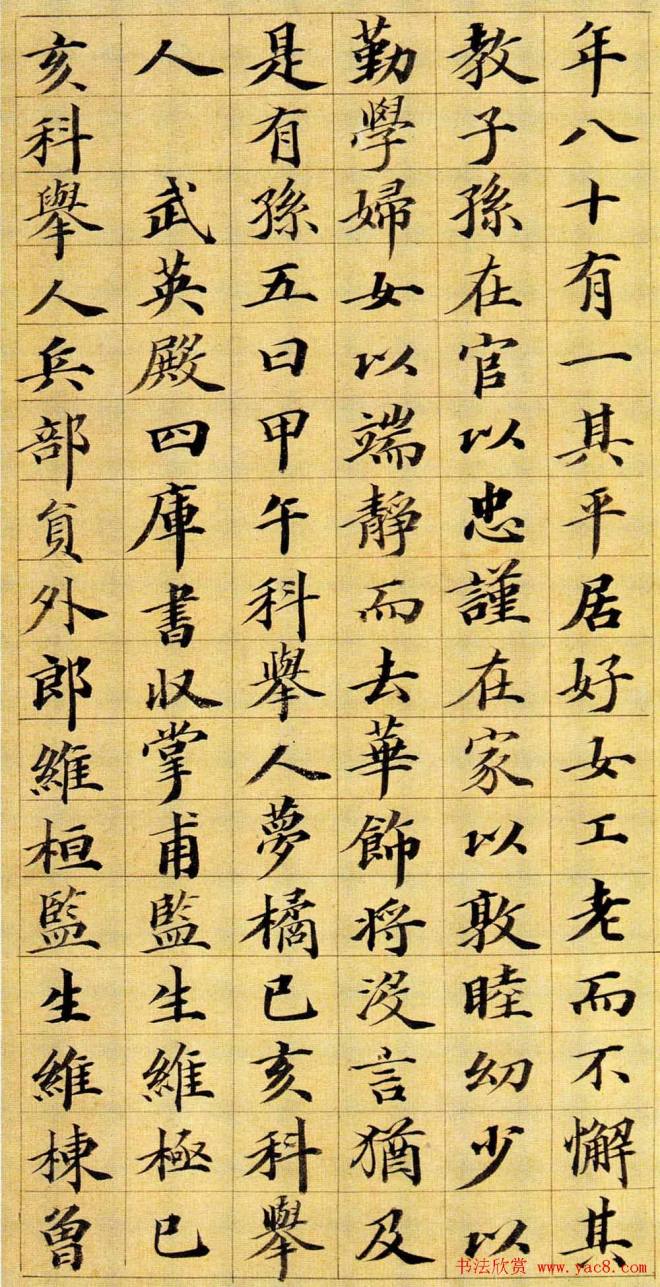 年八十有一其平居好女工老而不懈其
教子孫在官以忠謹在家以敦睦幼少以
勤學婦女以端靜而去華飾将沒言猶及
是有孫五曰甲午科舉人夢橘己亥科舉
人 武英殿四庫書收掌甫監生維極己
亥科舉人兵部員外郎維桓監生維棟曾
书法欣赏 www.yac8.com